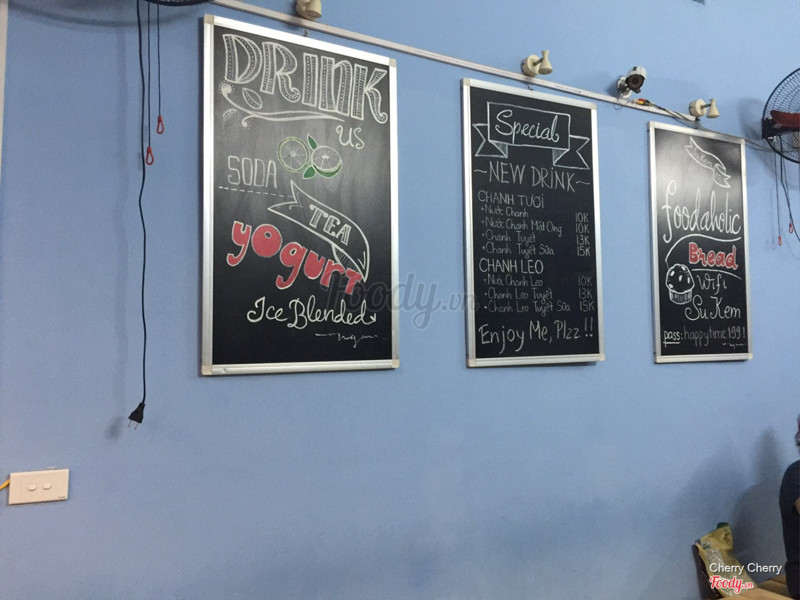 DRINK
US
SODA
TEA
yogurt
Ice Blended
Special
~ NEW DRINK ~
CHANH TƯƠI
• Nước Chanh 10K
• Nước Chanh Mật Ong 10K
• Chanh Tuyết 13K
• Chanh Tuyết Sữa 15K
CHANH LEO
• Nước Chanh Leo 10K
• Chanh Leo Tuyết 13K
• Chanh Leo Tuyết Sữa 15K
Enjoy Me, Plzz !!
foodaholic
Bread
Wifi
Su Kem
pass: happytime1991
Foody.vn
Cherry Cherry
Foody.vn